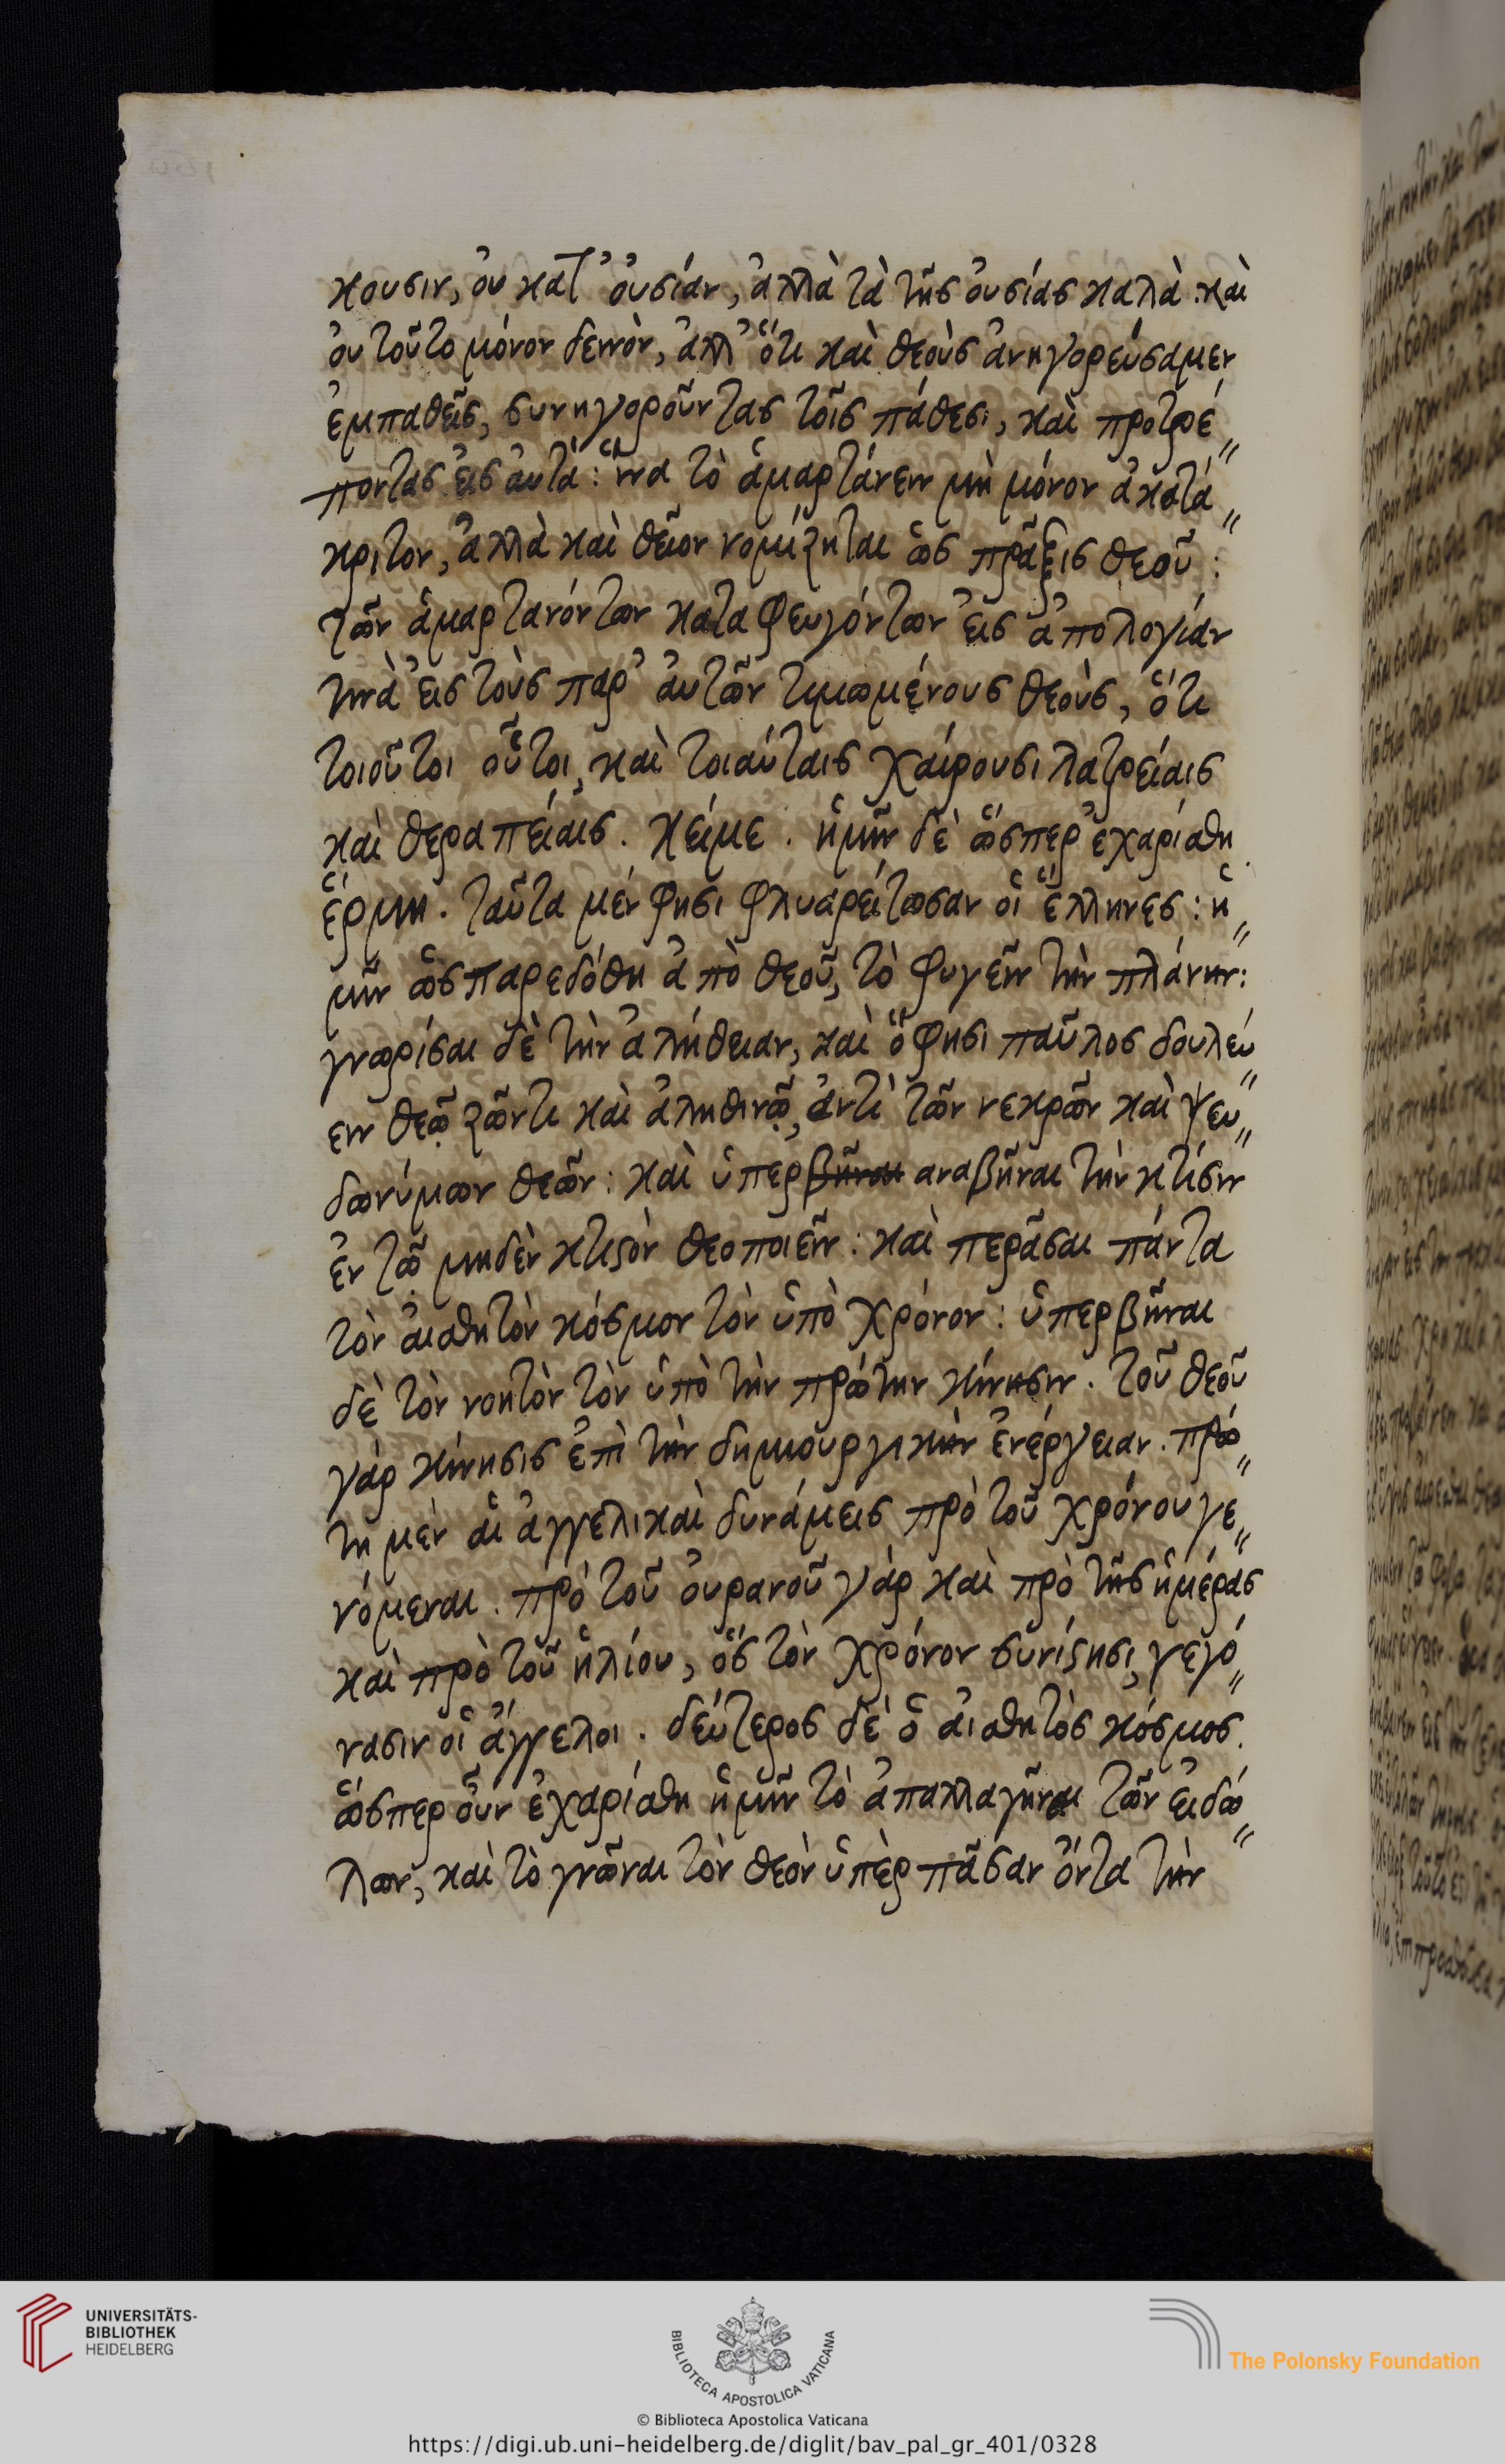 κουσιν, οὐ κατ᾽ οὐσίαν, ἀλλὰ τὰ τῆς οὐσίας καλὰ. καὶ
οὐ τοῦτο μόνον δεινὸν, ἀλλ᾽ ὅτι καὶ θεοὺς ἀνηγορεύσαμεν
ἐμπαθεῖς, συνηγοροῦντας τοῖς πάθεσι, καὶ προτρέ〃
ποντας εἰς αὐτὰ: ἵνα τὸ ἁμαρτάνειν μὴ μόνον ἀκατά〃
κριτον, ἀλλὰ καὶ θεῖον νομίζηται ὡς πρᾶξις θεοῦ:
τῶν ἁμαρτανόντων καταφευγόντων εἰς ἀπολογίαν
τινὰ εἰς τοὺς παρ᾽ αὐτῶν τιμωμένους θεοὺς, ὅτι
τοιοῦτοι οὗτοι, καὶ τοιαύταις χαίρουσι λατρείαις
καὶ θεραπείαις. κείμε. ἡμῖν δὲ ὥσπερ ἐχαρίσθη
ἑρμη. ταῦτα μέν φησι φλυαρείτωσαν οἱ ἕλληνες: ἡ〃
μῖν ὡς παρεδόθη ἀπὸ θεοῦ, τὸ φυγεῖν τὴν πλάνην:
γνωρίσαι δὲ τὴν ἀλήθειαν, καὶ ὅ φησι παῦλος δουλεύ〃
ειν θεῷ ζῶντι καὶ ἀληθινῷ, ἀντὶ τῶν νεκρῶν καὶ ψευ〃
δωνύμων θεῶν: καὶ ὑπερβῆναι αναβῆναι τὴν κτίσιν
ἐν τῷ μηδὲν κτιστὸν θεοποιεῖν: καὶ περᾶσαι πάντα
τὸν αἰσθητὸν κόσμον τὸν ὑπὸ χρόνον: ὑπερβῆναι
δὲ τὸν νοητὸν τὸν ὑπὸ τὴν πρώτην κίνησιν. τοῦ θεοῦ
γὰρ κίνησις ἐπὶ τὴν δημιουργικὴν ἐνέργειαν. πρώ〃
τη μὲν αἱ ἀγγελικαὶ δυνάμεις πρὸ τοῦ χρόνου γε〃
νόμεναι. πρὸ τοῦ οὐρανοῦ γὰρ καὶ πρὸ τῆς ἡμέρας
καὶ πρὸ τοῦ ἡλίου, ὃς τὸν χρόνον συνίστησι, γεγό〃
νασιν οἱ ἄγγελοι. δεύτερος δὲ ὁ αἰσθητὸς κόσμος.
ὥσπερ οὖν ἐχαρίσθη ἡμῖν τὸ ἀπαλλαγῆναι τῶν εἰδώ〃
λων, καὶ τὸ γνῶναι τὸν θεὸν ὑπὲρ πᾶσαν ὄντα τὴν
UNIVERSITÄTS-
BIBLIOTHEK
HEIDELBERG
BIBLIOTECA APOSTOLICA VATICANA
The Polonsky Foundation
© Biblioteca Apostolica Vaticana
https://digi.ub.uni-heidelberg.de/diglit/bav_pal_gr_401/0328